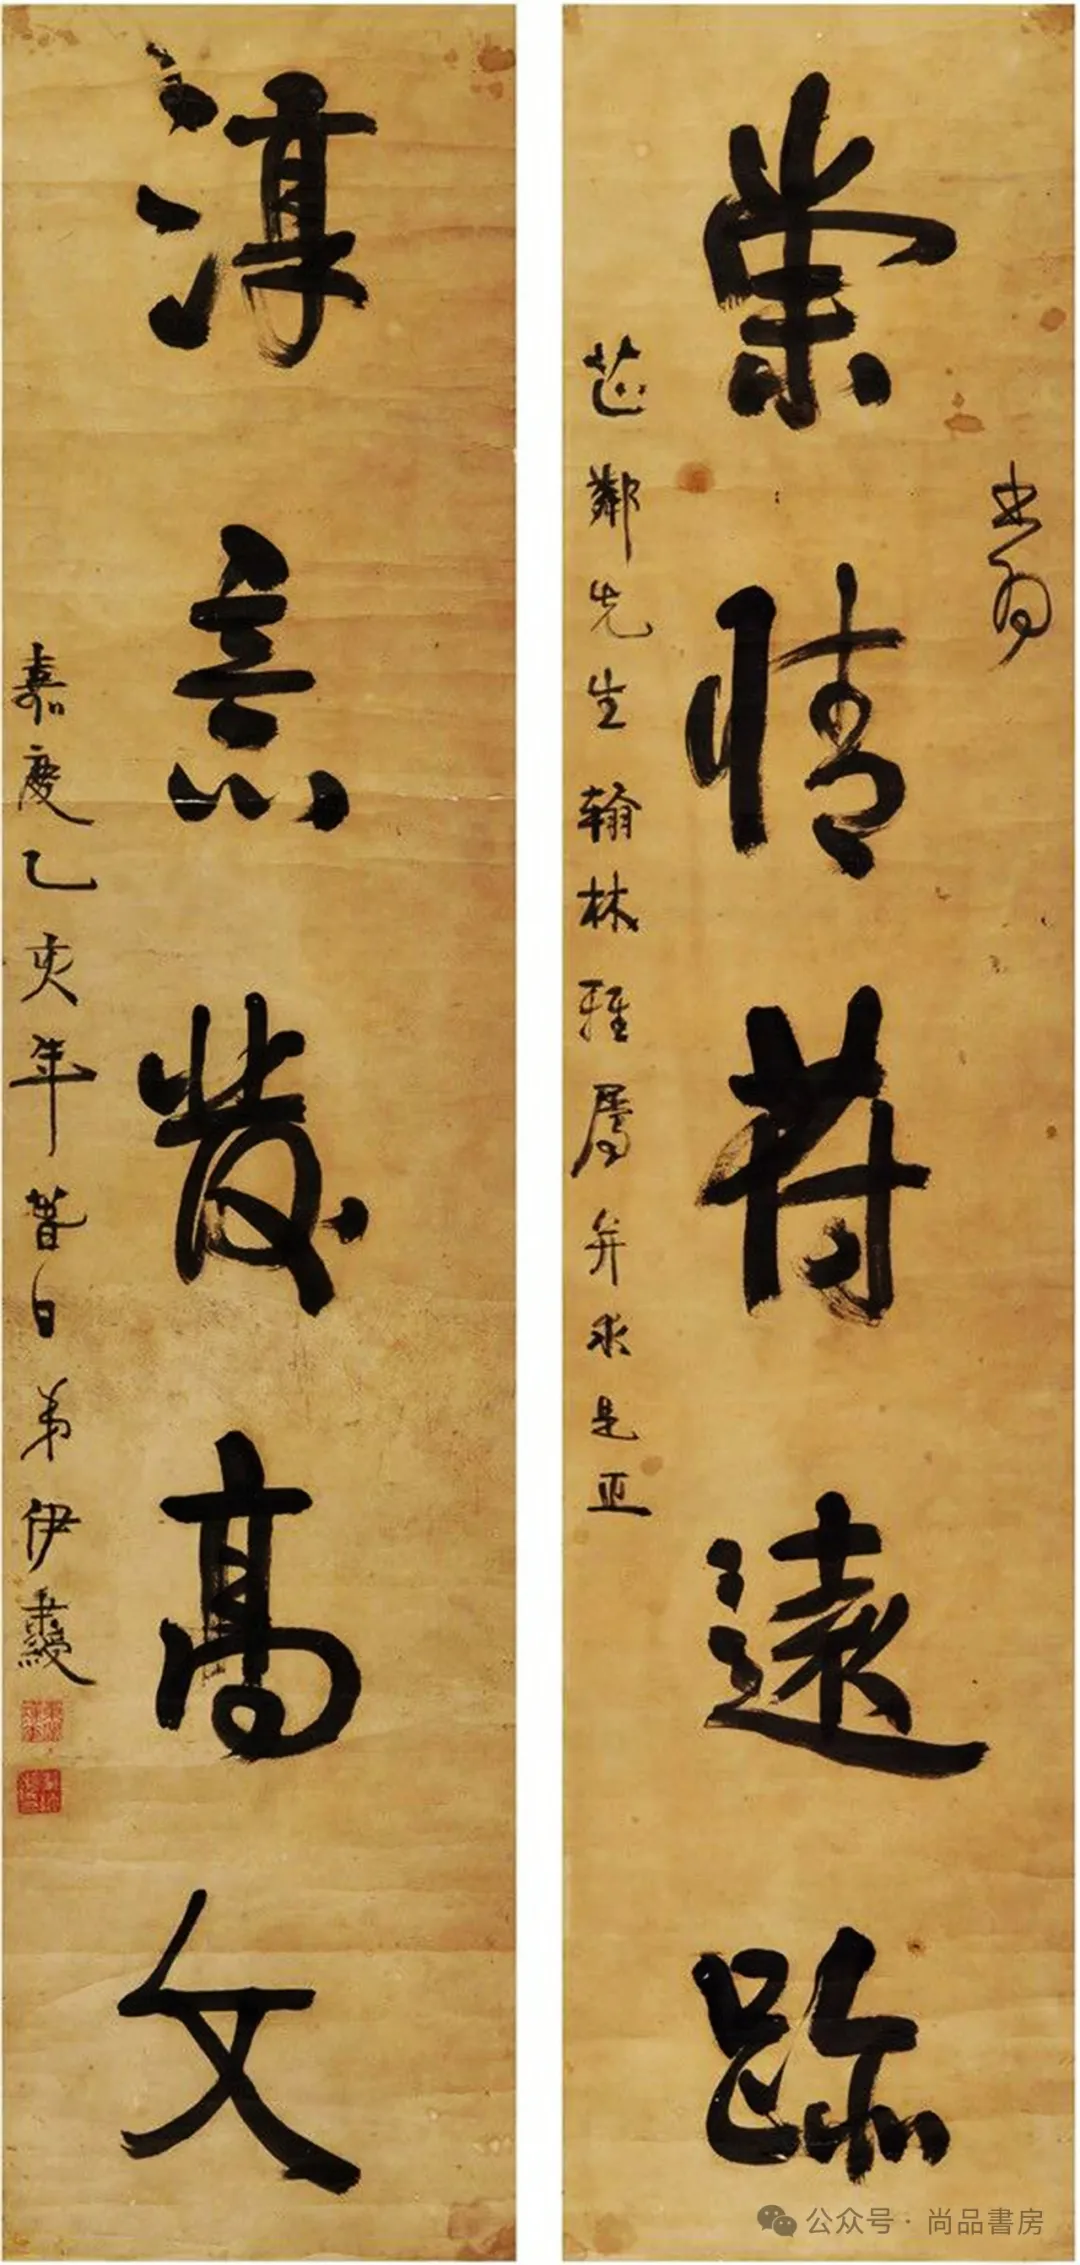 崇情符遠跡
書為
芷鄰先生翰林雅屬并求是正
淳意發高文
嘉慶乙亥年春日弟伊秉綬
公众号 · 尚品書房